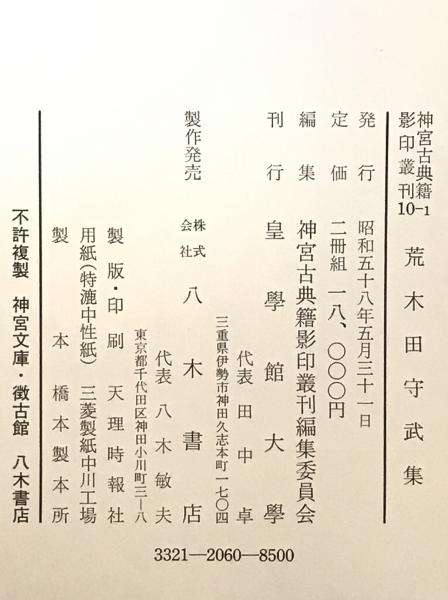 神宮古典籍影印叢刊10-1
荒木田守武集
発行 昭和五十八年五月三十一日
定価 二冊組 一八、〇〇〇円
編集 神宮古典籍影印叢刊編集委員会
刊行 皇學館大學
代表 田中卓
三重県伊勢市神田久志本町一七〇四
製作発売 株式会社 八木書店
代表 八木敏夫
東京都千代田区神田小川町三―八
製版・印刷 天理時報社
用紙(特漉中性紙) 三菱製紙中川工場
製本 橋本製本所
不許複製 神宮文庫・徴古館 八木書店
3321―2060―8500